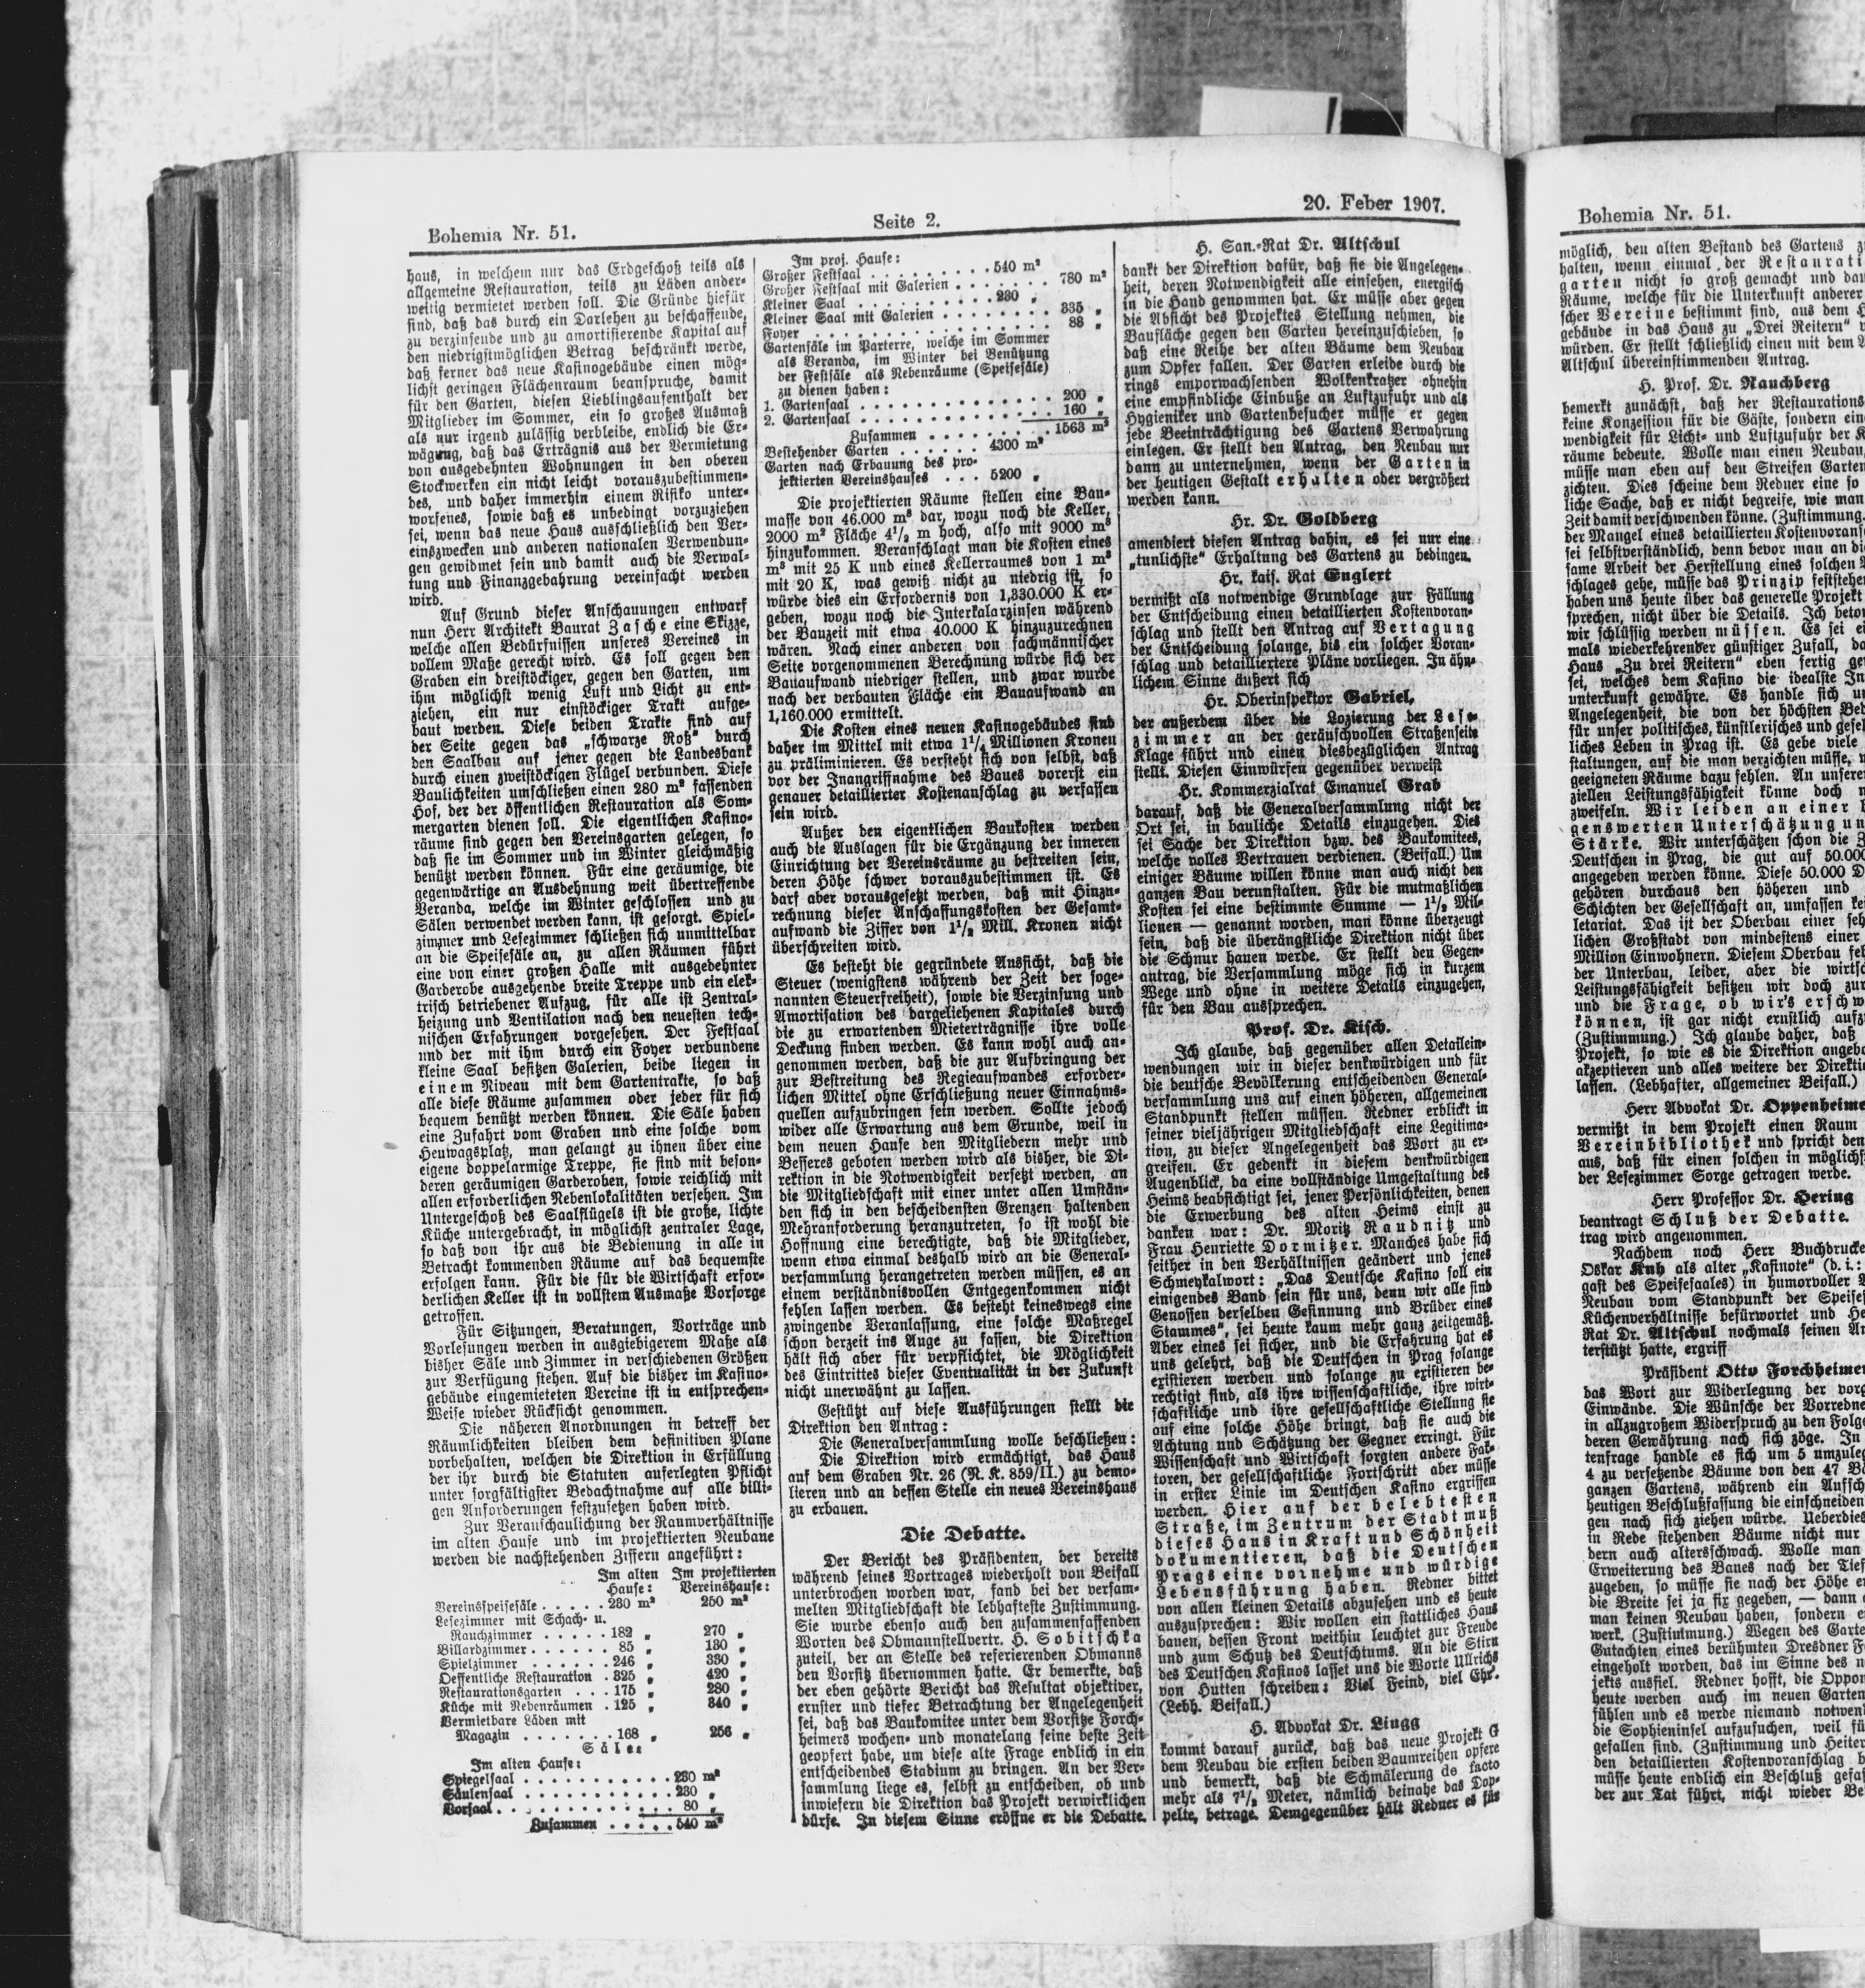 Bohemia Nr. 51.
Seite 2.
20. Feber 1907.
haus, in welchem nur das Erdgeschoß teils als
allgemeine Restauration, teils zu Läden ander-
weitig vermietet werden soll. Die Gründe hiefür
sind, daß das durch ein Darlehen zu beschaffende,
zu verzinsende und zu amortisierende Kapital auf
den niedrigstmöglichen Betrag beschränkt werde,
daß ferner das neue Kasinogebäude einen mög-
lichst geringen Flächenraum beanspruche, damit
für den Garten, diesen Lieblingsaufenthalt der
Mitglieder im Sommer, ein so großes Ausmaß
als nur irgend zulässig verbleibe, endlich die Er-
wägung, daß das Erträgnis aus der Vermietung
von ausgedehnten Wohnungen in den oberen
Stockwerken ein nicht leicht vorauszubestimmen-
des, und daher immerhin einem Risiko unter-
worfenes, sowie daß es unbedingt vorzuziehen
sei, wenn das neue Haus ausschließlich den Ver-
einszwecken und anderen nationalen Verwendun-
gen gewidmet sein und damit auch die Verwal-
tung und Finanzgebahrung vereinfacht werden
wird.
Auf Grund dieser Anschauungen entwarf
nun Herr Architekt Baurat Zasche eine Skizze,
welche allen Bedürfnissen unseres Vereines in
vollem Maße gerecht wird. Es soll gegen den
Graben ein dreistöckiger, gegen den Garten, um
ihm möglichst wenig Luft und Licht zu ent-
ziehen, ein nur einstöckiger Trakt aufge-
baut werden. Diese beiden Trakte sind auf
der Seite gegen das „schwarze Roß“ durch
den Saalbau auf jener gegen die Landesbank
durch einen zweistöckigen Flügel verbunden. Diese
Baulichkeiten umschließen einen 280 m² fassenden
Hof, der der öffentlichen Restauration als Som-
mergarten dienen soll. Die eigentlichen Kasino-
räume sind gegen den Vereinsgarten gelegen, so
daß sie im Sommer und im Winter gleichmäßig
benützt werden können. Für eine geräumige, die
gegenwärtige an Ausdehnung weit übertreffende
Veranda, welche im Winter geschlossen und zu
Sälen verwendet werden kann, ist gesorgt. Spiel-
zimmer und Lesezimmer schließen sich unmittelbar
an die Speisesäle an, zu allen Räumen führt
eine von einer großen Halle mit ausgedehnter
Garderobe ausgehende breite Treppe und ein elek-
trisch betriebener Aufzug, für alle ist Zentral-
heizung und Ventilation nach den neuesten tech-
nischen Erfahrungen vorgesehen. Der Festsaal
und der mit ihm durch ein Foyer verbundene
kleine Saal besitzen Galerien, beide liegen in
einem Niveau mit dem Gartentrakte, so daß
alle diese Räume zusammen oder jeder für sich
bequem benützt werden können. Die Säle haben
eine Zufahrt vom Graben und eine solche vom
Heuwagsplatz, man gelangt zu ihnen über eine
eigene doppelarmige Treppe, sie sind mit beson-
deren geräumigen Garderoben, sowie reichlich mit
allen erforderlichen Nebenlokalitäten versehen. Im
Untergeschoß des Saalflügels ist die große, lichte
Küche untergebracht, in möglichst zentraler Lage,
so daß von ihr aus die Bedienung in alle in
Betracht kommenden Räume auf das bequemste
erfolgen kann. Für die für die Wirtschaft erfor-
derlichen Keller ist in vollstem Ausmaße Vorsorge
getroffen.
Für Sitzungen, Beratungen, Vorträge und
Vorlesungen werden in ausgiebigerem Maße als
bisher Säle und Zimmer in verschiedenen Größen
zur Verfügung stehen. Auf die bisher im Kasino-
gebäude eingemieteten Vereine ist in entsprechen-
Weise wieder Rücksicht genommen.
Die näheren Anordnungen in betreff der
Räumlichkeiten bleiben dem definitiven Plane
vorbehalten, welchen die Direktion in Erfüllung
der ihr durch die Statuten auferlegten Pflicht
unter sorgfältigster Bedachtnahme auf alle billi-
gen Anforderungen festzusetzen haben wird.
Zur Veranschaulichung der Raumverhältnisse
im alten Hause und im projektierten Neubane
werden die nachstehenden Ziffern angeführt:
Im alten Im projektierten
Hause: Vereinshause:
Vereinsspeisesäle . . . . . 230 m² 250 m²
Lesezimmer mit Schach- u.
Rauchzimmer . . . . . 182 „ 270 „
Billardzimmer . . . . . . 85 „ 180 „
Spielzimmer . . . . . . 246 „ 330 „
Oeffentliche Restauration . 325 „ 420 „
Restaurationsgarten . . . 175 „ 280 „
Küche mit Nebenräumen . 125 „ 340 „
Vermietbare Läden mit
Magazin . . . . . . . 168 „ 256 „
Säle:
Im alten Hause:
Spiegelsaal . . . . . . . . . . . 230 m²
Säulensaal . . . . . . . . . . . 230 „
Vorsaal . . . . . . . . . . . . 80 „
Zusammen . . . . . 540 m²
Im proj. Hause:
Großer Festsaal . . . . . . . . . 540 m²
Großer Festsaal mit Galerien . . . . . . . 780 m²
Kleiner Saal . . . . . . . . . . 230 „
Kleiner Saal mit Galerien . . . . . . . . 335 „
Foyer . . . . . . . . . . . . . . . . 88 „
Gartensäle im Parterre, welche im Sommer
als Veranda, im Winter bei Benützung
der Festsäle als Nebenräume (Speisesäle)
zu dienen haben:
1. Gartensaal . . . . . . . . . . . . . . 200 „
2. Gartensaal . . . . . . . . . . . . . . 160 „
Zusammen . . . . . . . . 1563 m²
Bestehender Garten . . . . . . . 4300 m²
Garten nach Erbauung des pro-
jektierten Vereinshauses . . . 5200 „
Die projektierten Räume stellen eine Bau-
masse von 46.000 m³ dar, wozu noch die Keller,
2000 m² Fläche 4½ m hoch, also mit 9000 m³
hinzukommen. Veranschlagt man die Kosten eines
m³ mit 25 K und eines Kellerraumes von 1 m³
mit 20 K, was gewiß nicht zu niedrig ist, so
würde dies ein Erfordernis von 1,330.000 K er-
geben, wozu noch die Interkalarzinsen während
der Bauzeit mit etwa 40.000 K hinzuzurechnen
wären. Nach einer anderen von fachmännischer
Seite vorgenommenen Berechnung würde sich der
Bauaufwand niedriger stellen, und zwar wurde
nach der verbauten Fläche ein Bauaufwand an
1,160.000 ermittelt.
Die Kosten eines neuen Kasinogebäudes sind
daher im Mittel mit etwa 1¼ Millionen Kronen
zu präliminieren. Es versteht sich von selbst, daß
vor der Inangriffnahme des Baues vorerst ein
genauer detaillierter Kostenanschlag zu verfassen
sein wird.
Außer den eigentlichen Baukosten werden
auch die Auslagen für die Ergänzung der inneren
Einrichtung der Vereinsräume zu bestreiten sein,
deren Höhe schwer vorauszubestimmen ist. Es
darf aber vorausgesetzt werden, daß mit Hinzu-
rechnung dieser Anschaffungskosten der Gesamt-
aufwand die Ziffer von 1½ Mill. Kronen nicht
überschreiten wird.
Es besteht die gegründete Aussicht, daß die
Steuer (wenigstens während der Zeit der soge-
nannten Steuerfreiheit), sowie die Verzinsung und
Amortisation des dargeliehenen Kapitales durch
die zu erwartenden Mieterträgnisse ihre volle
Deckung finden werden. Es kann wohl auch an-
genommen werden, daß die zur Aufbringung der
zur Bestreitung des Regieaufwandes erforder-
lichen Mittel ohne Erschließung neuer Einnahms-
quellen aufzubringen sein werden. Sollte jedoch
wider alle Erwartung aus dem Grunde, weil in
dem neuen Hause den Mitgliedern mehr und
Besseres geboten werden wird als bisher, die Di-
rektion in die Notwendigkeit versetzt werden, an
die Mitgliedschaft mit einer unter allen Umstän-
den sich in den bescheidensten Grenzen haltenden
Mehranforderung heranzutreten, so ist wohl die
Hoffnung eine berechtigte, daß die Mitglieder,
wenn etwa einmal deshalb wird an die General-
versammlung herangetreten werden müssen, es an
einem verständnisvollen Entgegenkommen nicht
fehlen lassen werden. Es besteht keineswegs eine
zwingende Veranlassung, eine solche Maßregel
schon derzeit ins Auge zu fassen, die Direktion
hält sich aber für verpflichtet, die Möglichkeit
des Eintrittes dieser Eventualität in der Zukunft
nicht unerwähnt zu lassen.
Gestützt auf diese Ausführungen stellt die
Direktion den Antrag:
Die Generalversammlung wolle beschließen:
Die Direktion wird ermächtigt, das Haus
auf dem Graben Nr. 26 (N. K. 859/II.) zu demo-
lieren und an dessen Stelle ein neues Vereinshaus
zu erbauen.
Die Debatte.
Der Bericht des Präsidenten, der bereits
während seines Vortrages wiederholt von Beifall
unterbrochen worden war, fand bei der versam-
melten Mitgliedschaft die lebhafteste Zustimmung.
Sie wurde ebenso auch den zusammenfassenden
Worten des Obmannstellvertr. H. Sobitschka
zuteil, der an Stelle des referierenden Obmanns
den Vorsitz übernommen hatte. Er bemerkte, daß
der eben gehörte Bericht das Resultat objektiver,
ernster und tiefer Betrachtung der Angelegenheit
sei, daß das Baukomitee unter dem Vorsitze Forch-
heimers wochen- und monatelang seine beste Zeit
geopfert habe, um diese alte Frage endlich in ein
entscheidendes Stadium zu bringen. An der Ver-
sammlung liege es, selbst zu entscheiden, ob und
inwiefern die Direktion das Projekt verwirklichen
dürfe. In diesem Sinne eröffne er die Debatte.
H. San.-Rat Dr. Altschul
dankt der Direktion dafür, daß sie die Angelegen-
heit, deren Notwendigkeit alle einsehen, energisch
in die Hand genommen hat. Er müsse aber gegen
die Absicht des Projektes Stellung nehmen, die
Baufläche gegen den Garten hereinzuschieben, so
daß eine Reihe der alten Bäume dem Neubau
zum Opfer fallen. Der Garten erleide durch die
rings emporwachsenden Wolkenkratzer ohnehin
eine empfindliche Einbuße an Luftzufuhr und als
Hygieniker und Gartenbesucher müsse er gegen
jede Beeinträchtigung des Gartens Verwahrung
einlegen. Er stellt den Antrag, den Neubau nur
dann zu unternehmen, wenn der Garten in
der heutigen Gestalt erhalten oder vergrößert
werden kann.
Hr. Dr. Goldberg
amendiert diesen Antrag dahin, es sei nur eine
„tunlichste“ Erhaltung des Gartens zu bedingen.
Hr. kais. Rat Englert
vermißt als notwendige Grundlage zur Fällung
der Entscheidung einen detaillierten Kostenvoran-
schlag und stellt den Antrag auf Vertagung
der Entscheidung solange, bis ein solcher Voran-
schlag und detailliertere Pläne vorliegen. In ähn-
lichem Sinne äußert sich
Hr. Oberinspektor Gabriel,
der außerdem über die Lozierung der Lese-
zimmer an der geräuschvollen Straßenseite
Klage führt und einen diesbezüglichen Antrag
stellt. Diesen Einwürfen gegenüber verweist
Hr. Kommerzialrat Emanuel Grab
darauf, daß die Generalversammlung nicht der
Ort sei, in bauliche Details einzugehen. Dies
sei Sache der Direktion bzw. des Baukomitees,
welche volles Vertrauen verdienen. (Beifall.) Um
einiger Bäume willen könne man auch nicht den
ganzen Bau verunstalten. Für die mutmaßlichen
Kosten sei eine bestimmte Summe — 1½ Mil-
lionen — genannt worden, man könne überzeugt
sein, daß die überängstliche Direktion nicht über
die Schnur hauen werde. Er stellt den Gegen-
antrag, die Versammlung möge sich in kurzem
Wege und ohne in weitere Details einzugehen,
für den Bau aussprechen.
Prof. Dr. Kisch.
Ich glaube, daß gegenüber allen Detailein-
wendungen wir in dieser denkwürdigen und für
die deutsche Bevölkerung entscheidenden General-
versammlung uns auf einen höheren, allgemeinen
Standpunkt stellen müssen. Redner erblickt in
seiner vieljährigen Mitgliedschaft eine Legitima-
tion, zu dieser Angelegenheit das Wort zu er-
greifen. Er gedenkt in diesem denkwürdigen
Augenblick, da eine vollständige Umgestaltung des
Heims beabsichtigt sei, jener Persönlichkeiten, denen
die Erwerbung des alten Heims einst zu
danken war: Dr. Moritz Raudnitz und
Frau Henriette Dormitzer. Manches habe sich
seither in den Verhältnissen geändert und jenes
Schmeykalwort: „Das Deutsche Kasino soll ein
einigendes Band sein für uns, denn wir alle sind
Genossen derselben Gesinnung und Brüder eines
Stammes“, sei heute kaum mehr ganz zeitgemäß.
Aber eines sei sicher, und die Erfahrung hat es
uns gelehrt, daß die Deutschen in Prag solange
existieren werden und solange zu existieren be-
rechtigt sind, als ihre wissenschaftliche, ihre wirt-
schaftliche und ihre gesellschaftliche Stellung sie
auf eine solche Höhe bringt, daß sie auch die
Achtung und Schätzung der Gegner erringt. Für
Wissenschaft und Wirtschaft sorgten andere Fak-
toren, der gesellschaftliche Fortschritt aber müsse
in erster Linie im Deutschen Kasino ergriffen
werden. Hier auf der belebtesten
Straße, im Zentrum der Stadt muß
dieses Haus in Kraft und Schönheit
dokumentieren, daß die Deutschen
Prags eine vornehme und würdige
Lebensführung haben. Redner bittet
von allen kleinen Details abzusehen und es heute
auszusprechen: Wir wollen ein stattliches Haus
bauen, dessen Front weithin leuchtet zur Freude
und zum Schutz des Deutschtums. An die Stirn
des Deutschen Kasinos lasset uns die Worte Ullrichs
von Hutten schreiben: Viel Feind, viel Ehr.
(Lebh. Beifall.)
H. Advokat Dr. Lingg
kommt darauf zurück, daß das neue Projekt G
dem Neubau die ersten beiden Baumreihen opfere
und bemerkt, daß die Schmälerung de facto
mehr als 7½ Meter, nämlich beinahe das Dop-
pelte, betrage. Demgegenüber hält Redner es für
Bohemia Nr. 51.
möglich, den alten Bestand des Gartens
halten, wenn einmal der Restaurati
garten nicht so groß gemacht und dan
Räume, welche für die Unterkunft anderer
scher Vereine bestimmt sind, aus dem
gebäude in das Haus zu „Drei Reitern“
würden. Er stellt schließlich einen mit dem
Altschul übereinstimmenden Antrag.
H. Prof. Dr. Rauchberg
bemerkt zunächst, daß der Restaurations
keine Konzession für die Gäste, sondern ein
wendigkeit für Licht- und Luftzufuhr der
räume bedeute. Wolle man einen Neubau,
müsse man eben auf den Streifen Garten
zichten. Dies scheine dem Redner eine so
liche Sache, daß er nicht begreife, wie man
Zeit damit verschwenden könne. (Zustimmung.
der Mangel eines detaillierten Kostenvorans
sei selbstverständlich, denn bevor man an die
same Arbeit der Herstellung eines solchen
schlages gehe, müsse das Prinzip feststehen
haben uns heute über das generelle Projekt
sprechen, nicht über die Details. Ich beton
wir schlüssig werden müssen. Es sei ei
mals wiederkehrender günstiger Zufall, da
Haus „Zu drei Reitern“ eben fertig ge
sei, welches dem Kasino die idealste In
unterkunft gewähre. Es handle sich u
Angelegenheit, die von der höchsten Bed
für unser politisches, künstlerisches und gesel
liches Leben in Prag ist. Es gebe viele
staltungen, auf die man verzichten müsse,
geeigneten Räume dazu fehlen. An unserer
ziellen Leistungsfähigkeit könne doch
zweifeln. Wir leiden an einer
genswerten Unterschätzung un
Stärke. Wir unterschätzen schon die
Deutschen in Prag, die gut auf 50.000
angegeben werden könne. Diese 50.000 D
gehören durchaus den höheren und
Schichten der Gesellschaft an, umfassen
letariat. Das ist der Oberbau einer
lichen Großstadt von mindestens einer
Million Einwohnern. Diesem Oberbau feh
der Unterbau, leider, aber die wirtsc
Leistungsfähigkeit besitzen wir doch zur
und die Frage, ob wir's erschw
können, ist gar nicht ernstlich aufz
(Zustimmung.) Ich glaube daher, daß
Projekt, so wie es die Direktion angeb
akzeptieren und alles weitere der Direkti
lassen. (Lebhafter, allgemeiner Beifall.)
Herr Advokat Dr. Oppenheime
vermißt in dem Projekt einen Raum
Vereinbibliothek und spricht den
aus, daß für einen solchen in möglichst
der Lesezimmer Sorge getragen werde.
Herr Professor Dr. Hering
beantragt Schluß der Debatte.
trag wird angenommen.
Nachdem noch Herr Buchdrucke
Oskar Kuh als alter „Kasinote“ (d. i.:
gast des Speisesaales) in humorvoller
Neubau vom Standpunkt der Speise
Küchenverhältnisse befürwortet und He
Rat Dr. Altschul nochmals seinen An
terstützt hatte, ergriff
Präsident Otto Forchheimer
das Wort zur Widerlegung der vorg
Einwände. Die Wünsche der Vorredne
in allzugroßem Widerspruch zu den Folge
deren Gewährung nach sich zöge. In
tenfrage handle es sich um 5 umzuleg
4 zu versetzende Bäume von den 47 Bä
ganzen Gartens, während ein Aufsch
heutigen Beschlußfassung die einschneiden
gen nach sich ziehen würde. Ueberdies
in Rede stehenden Bäume nicht nur
dern auch altersschwach. Wolle man
Erweiterung des Baues nach der Tief
zugeben, so müsse sie nach der Höhe er
die Breite sei ja fix gegeben, — dann
man keinen Neubau haben, sondern
werk. (Zustimmung.) Wegen des Garte
Gutachten eines berühmten Dresdner
eingeholt worden, das im Sinne des
jekts ausfiel. Redner hofft, die Oppon
heute werden auch im neuen Garten
fühlen und es werde niemand notwen
die Sophieninsel aufzusuchen, weil fü
gefallen sind. (Zustimmung und Heiter
den detaillierten Kostenvoranschlag
müsse heute endlich ein Beschluß gefaß
der zur Tat führt, nicht wieder Be